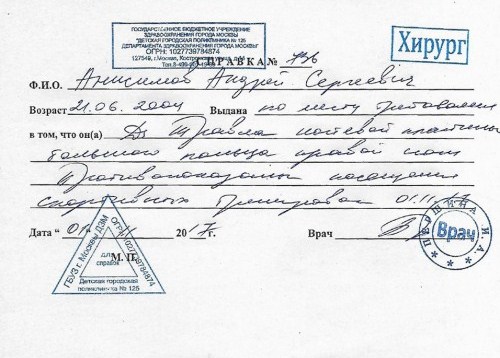 ГОСУДАРСТВЕННОЕ БЮДЖЕТНОЕ УЧРЕЖДЕНИЕ
ЗДРАВООХРАНЕНИЯ ГОРОДА МОСКВЫ
"ДЕТСКАЯ ГОРОДСКАЯ ПОЛИКЛИНИКА № 125
ДЕПАРТАМЕНТА ЗДРАВООХРАНЕНИЯ ГОРОДА МОСКВЫ"
ОГРН: 1027739784874
127549, г.Москва,
Хирург
СПРАВКА № 736
Ф.И.О. Анисимов Андрей Сергеевич
Возраст 21.06.2004 Выдана по месту требования
в том, что он(а) Ds Травма ногтевой пластины
большого пальца правой
Противопоказаны посещения
спортивных тренировок 01.11.17
Дата "01" 11 2017г. Врач
ПЕРШИНА И.А.
Врач
М.П.
ГБУЗ г. Москвы ДЗМ
ОГРН:1027739784874
для
справок
Детская городская
поликлиника № 125